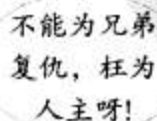 不能为兄弟
复仇，枉为
人主呀！